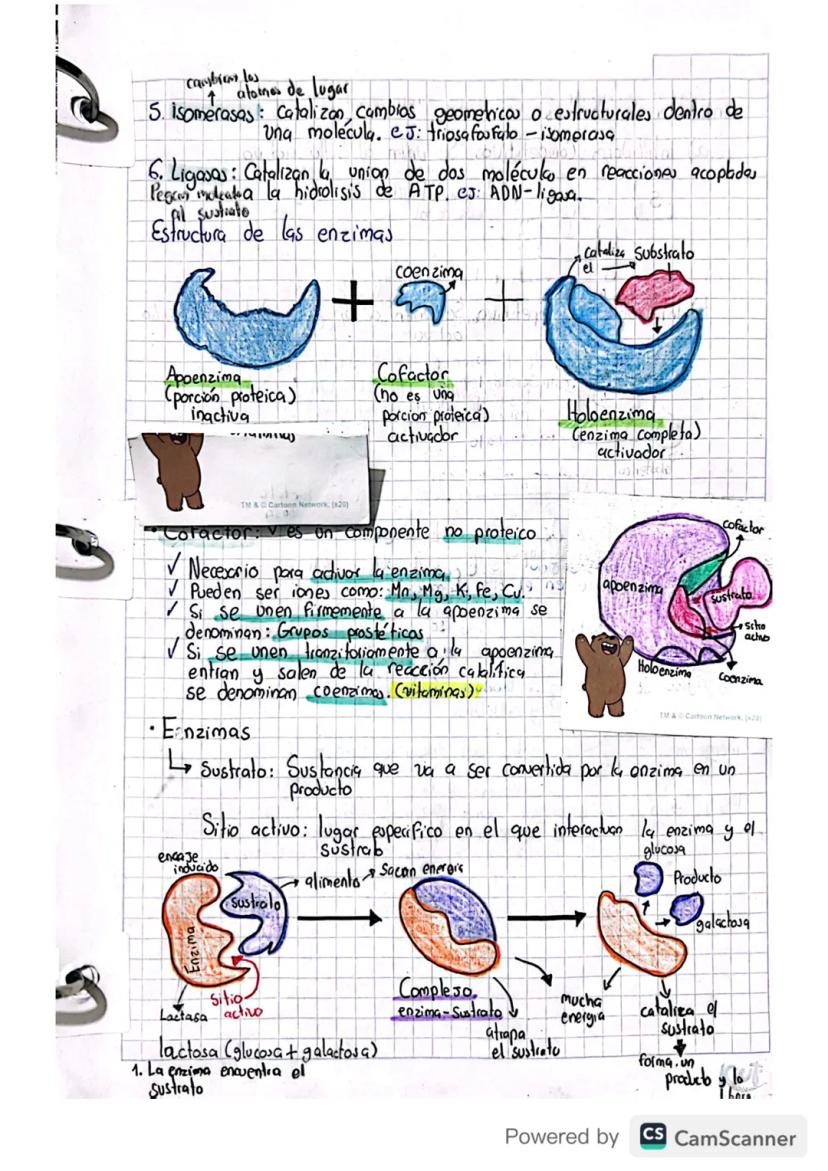 cambian los
átomos de lugar
5. isomerasas: Catalizan cambios geometricos o estructurales dentro de
una molécula. ej: triosafosfato - isomerasa
6. Ligasas: Catalizan la union de dos molécula en reacciones acopladas
Pegan molecula a la hidrolisis de ATP. ej: ADN-ligasa.
al sustrato
Estructura de las enzimas
coenzima
cataliza
el
Substrato
Apoenzima
(porción proteica)
inactiva
Cofactor
(no es una
porcion proteica)
activador
Holoenzima
(enzima completa)
activador
TM & © Cartoon Network. (s20)
• Cofactor: es un componente no proteico
✓ Necesario para activar la enzima
✓ Pueden ser iones como: Mn, Mg, K, Fe, Cu.
✓ Si se unen firmemente a la apoenzima se
denominan: Grupos prostéticos
✓ Si se unen tranzitoriamente a la apoenzima
entran y salen de la reacción catalitica
se denominan coenzimas. (vitaminas)
cofactor
apoenzima
sustrato
sitio
activo
Holoenzima
Coenzima
TM & © Cartoon Network. (s20)
• Enzimas
↳ Sustrato: Sustancia que va a ser convertida por la enzima en un
producto
Sitio activo: lugar especifico en el que interactuan la enzima y el
sustrato
encaje
inducido
alimento
Sacan energia
glucosa
Producto
galactosa
Sustrato
Enzima
Sitio
activo
Lactasa
Complejo
enzima-Sustrato
atrapa
el sustrato
mucha
energia
cataliza el
sustrato
forma un
producto y lo
libera
lactosa (glucosa + galactosa)
1. La enzima encuentra el
sustrato
Powered by CS CamScanner